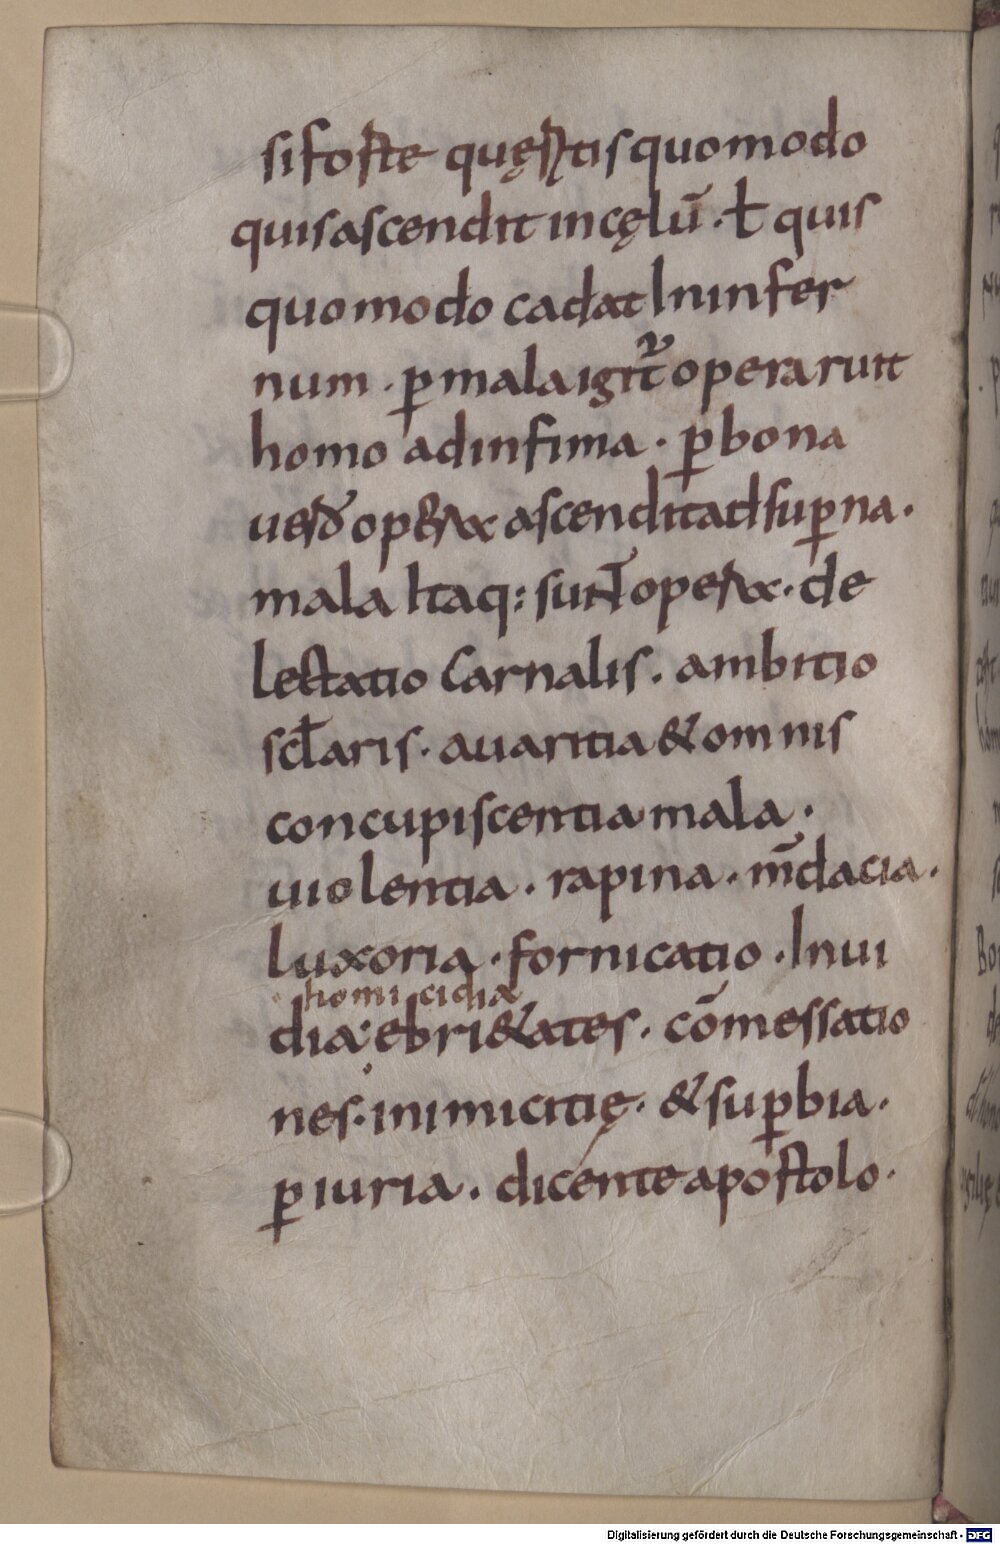 si foste quęritis quomodo
quis ascendit in cęlū · ł quis
quomodo cadat In infer
num · ꝑ mala igit̄ opera ruit
homo ad infima · ꝑ bona
uero opera ascendit ad suꝑna ·
mala Itaq: sunt opera · de
lectatio Carnalis · ambitio
sclaris · auaritia & omnis
concupiscentia mala ·
uiolentia · rapina · m̄dacia ·
luxoria · fornicatio · Inui
homicidia
dia · ebri&ates · cōmessatio
nes · inimicitię · & suꝑbia ·
ꝑiuria · dicente apostolo ·
Digitalisierung gefördert durch die Deutsche Forschungsgemeinschaft - DFG